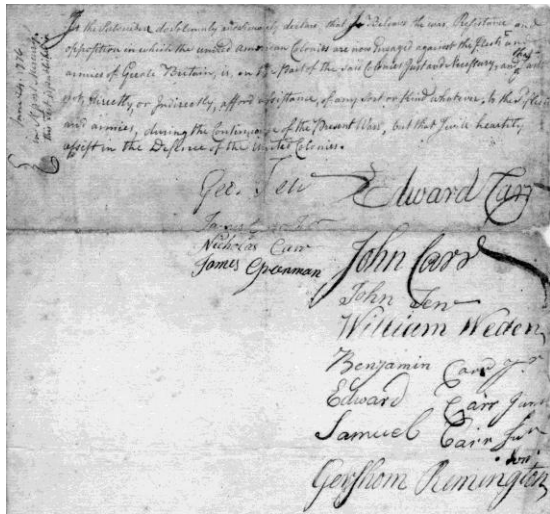 We the Subscribers do Solemnly and Sincerely declare that we Believe the War, Resistance and
opposition in which the united American Colonies are now Engaged against the Fleets and
armies of Great Britain, is, on the Part of the said Colonies Just and Necessary, and that we will
not, Directly, or Indirectly, afford assistance, of any Sort or Kind whatever, to the sd Fleets
and armies, during the Continuance of the Present War, but that we will heartily
assist in the Defence of the United Colonies.
Geo. Tew
Edward Carr
Nicholas Carr
James Greenman
John Carr
John Tew
William Weden
Benjamin Card Jr
Edward Carr Junr
Samuel Carr Junr
Gershom Remington